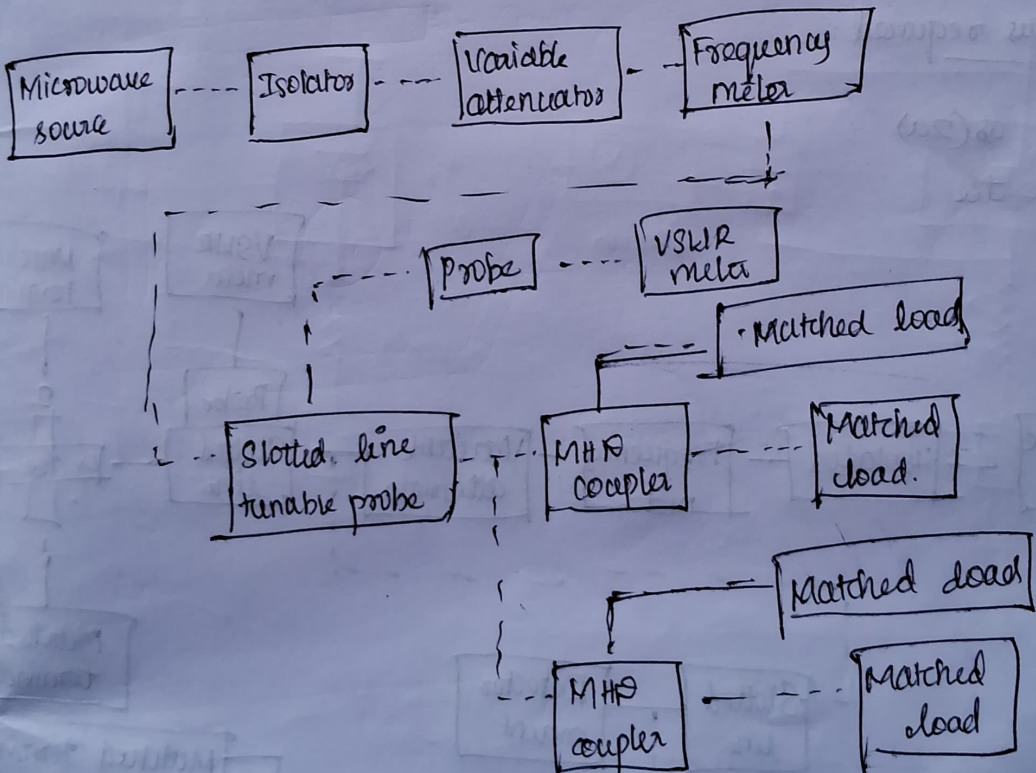 Microwave
source
Isolator
Variable
attenuator
Frequency
meter
Probe
VSWR
meter
Matched load
Slotted line
tunable probe
MHD
coupler
Matched
load.
Matched load
MHD
coupler
Matched
load